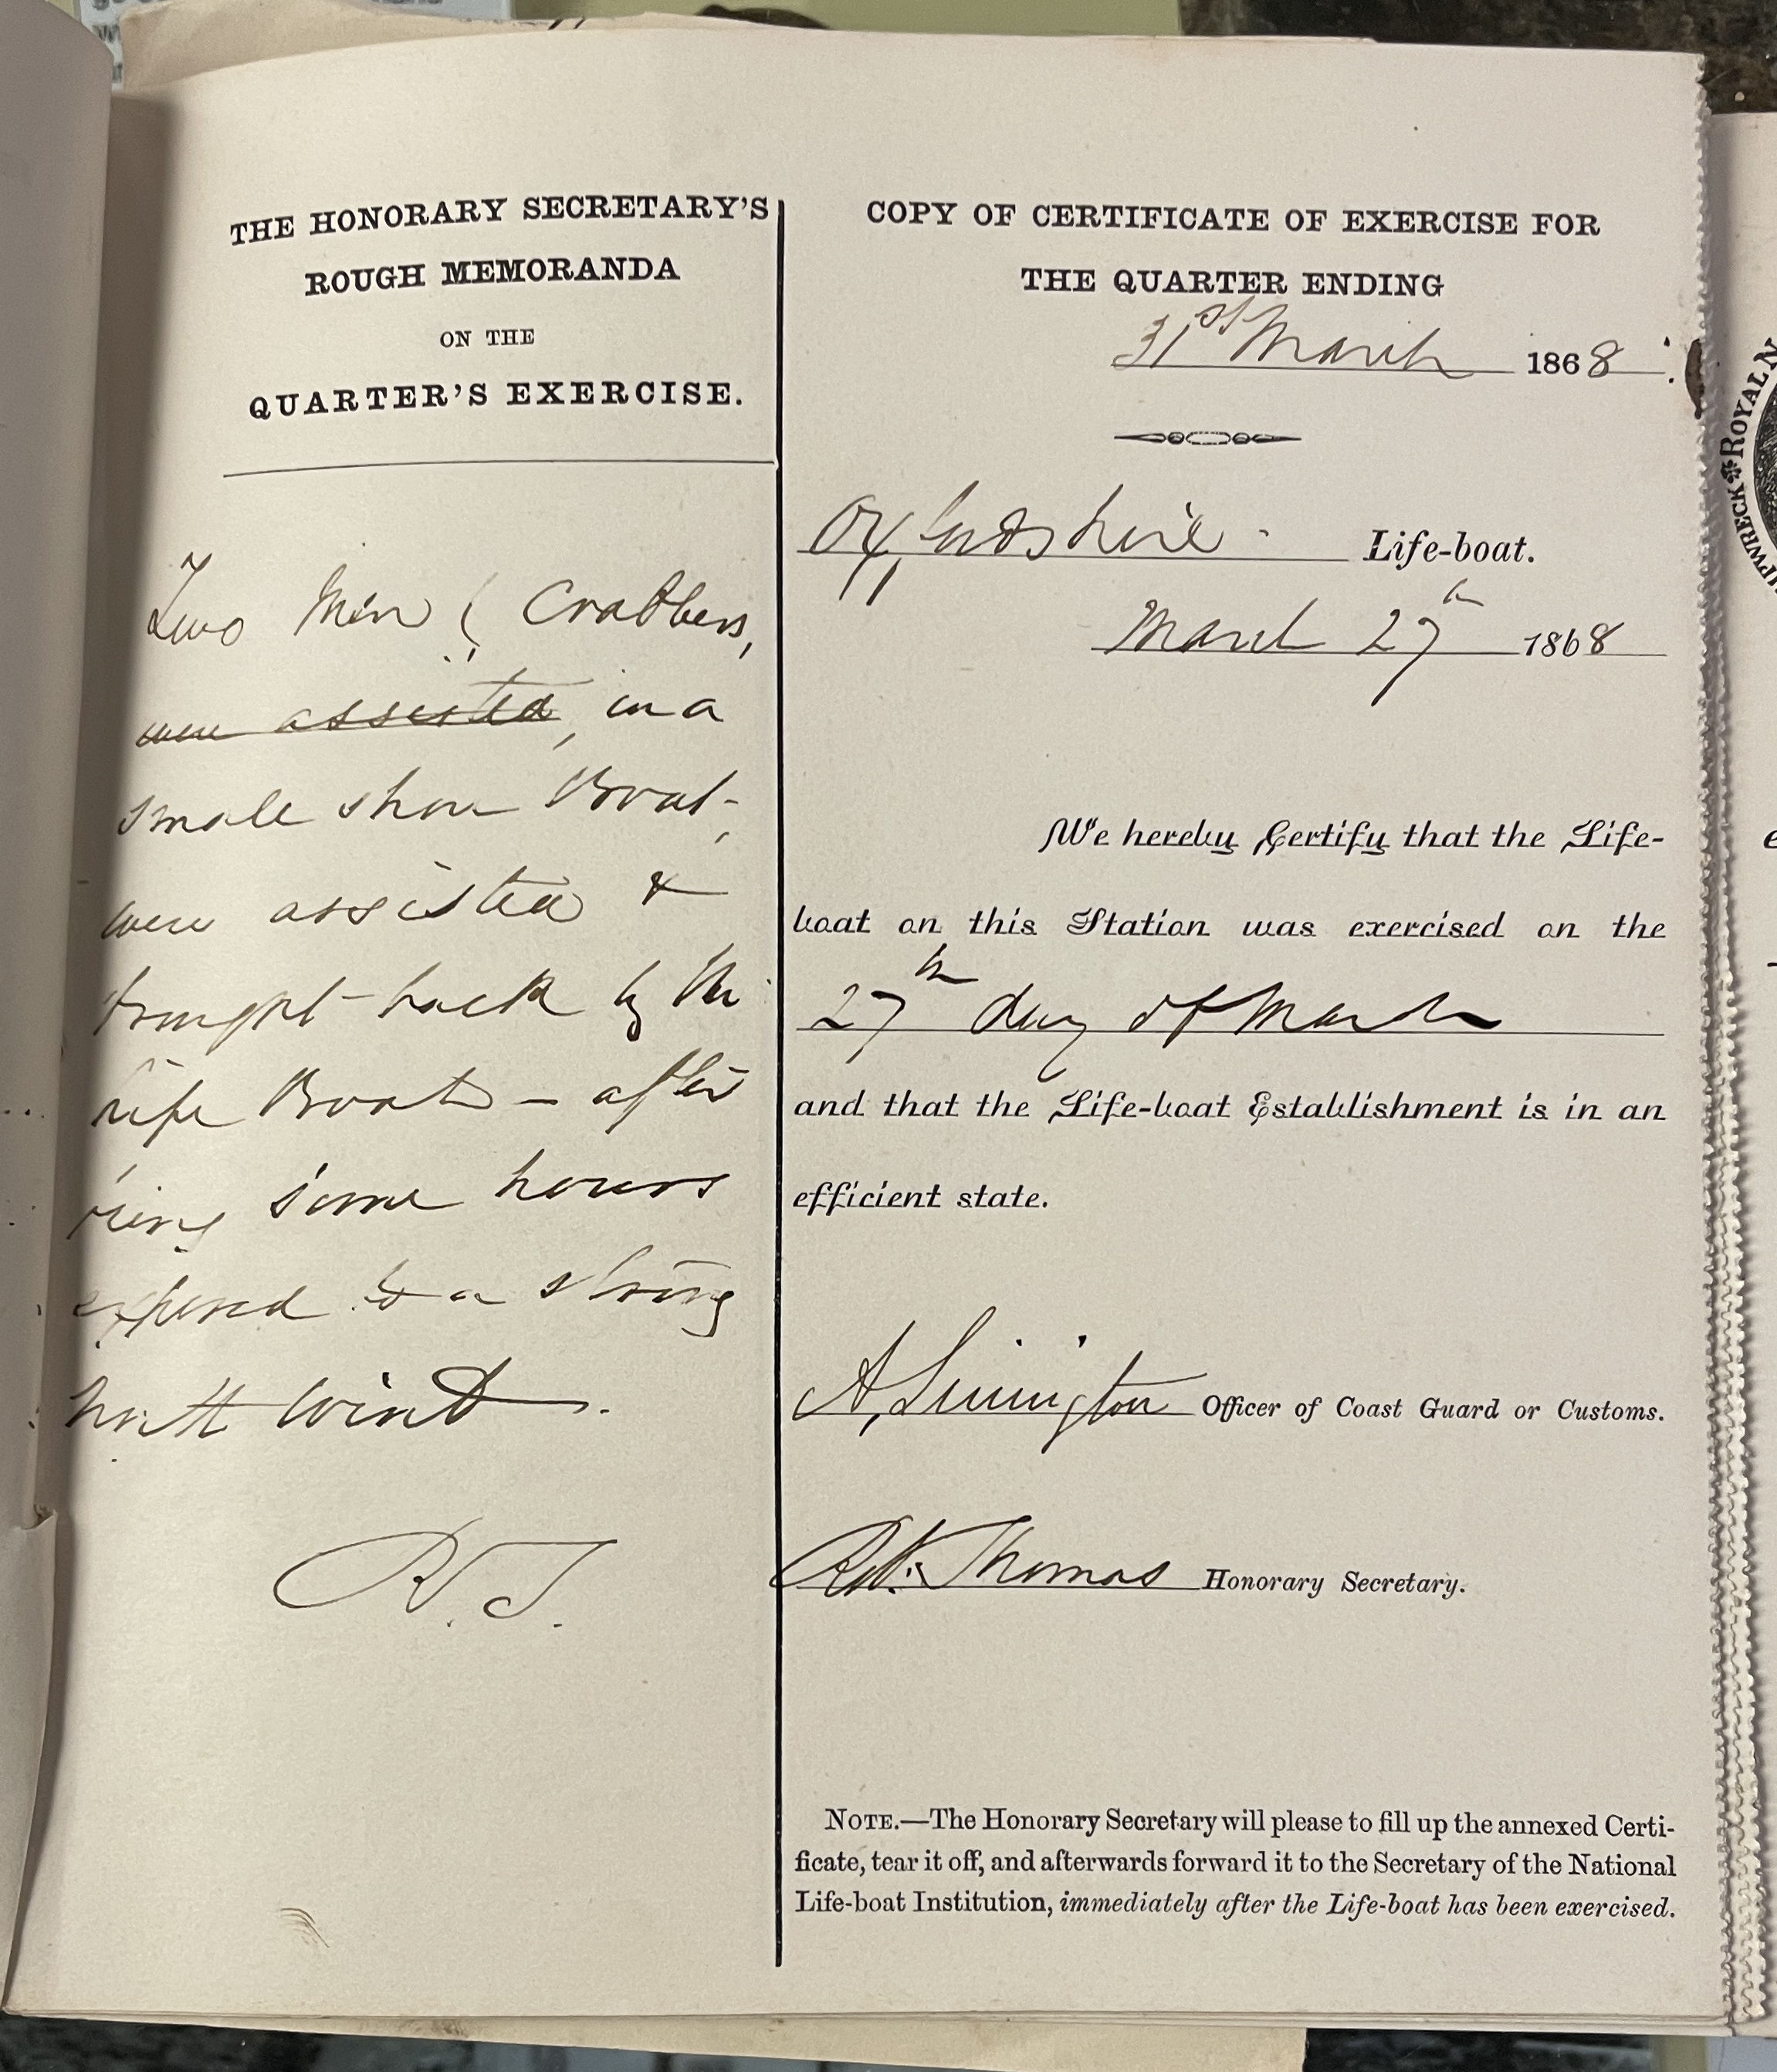 THE HONORARY SECRETARY'S
ROUGH MEMORANDA
ON THE
QUARTER'S EXERCISE.
Two Men ( Crabbers,
were assisted, in a
small shore Boat,
were assisted &
brought back by the
Life Boat – after
being some hours
exposed to a strong
North Wind.
R. T.
COPY OF CERTIFICATE OF EXERCISE FOR
THE QUARTER ENDING
31st March 1868
Oxfordshire - Life-boat.
March 27th 1868
We hereby Certify that the Life-
boat on this Station was exercised on the
27th day of March
and that the Life-boat Establishment is in an
efficient state.
A. Officer of Coast Guard or Customs.
Thomas Honorary Secretary.
NOTE.—The Honorary Secretary will please to fill up the annexed Certi-
ficate, tear it off, and afterwards forward it to the Secretary of the National
Life-boat Institution, immediately after the Life-boat has been exercised.
ROYAL N